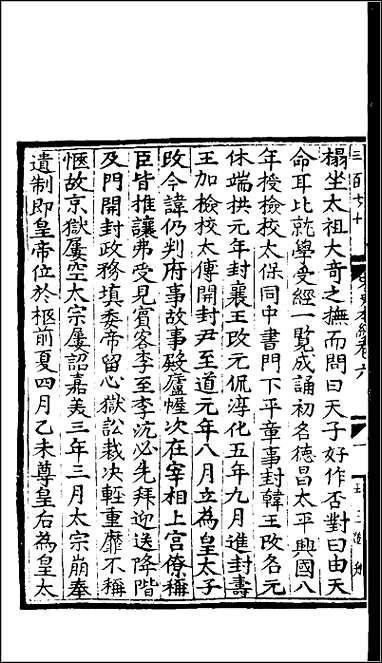 榻坐太祖大奇之撫而問曰天子好作否對曰由天
命耳比就學受經一覽成誦初名德昌太平興國八
年授檢校太保同中書門下平章事封韓王改名元
休端拱元年封襄王改元侃淳化五年九月進封壽
王加檢校太傅開封尹至道元年八月立為皇太子
改今諱仍判府事故事殿廬幄次在宰相上宮僚稱
臣皆推讓弗受見賓客李至李沆必先拜迎送降階
及門開封政務填委帝留心獄訟裁决輕重靡不稱
愜故京獄屢空太宗屢詔嘉美三年三月太宗崩奉
遺制即皇帝位於柩前夏四月乙未尊皇后為皇太